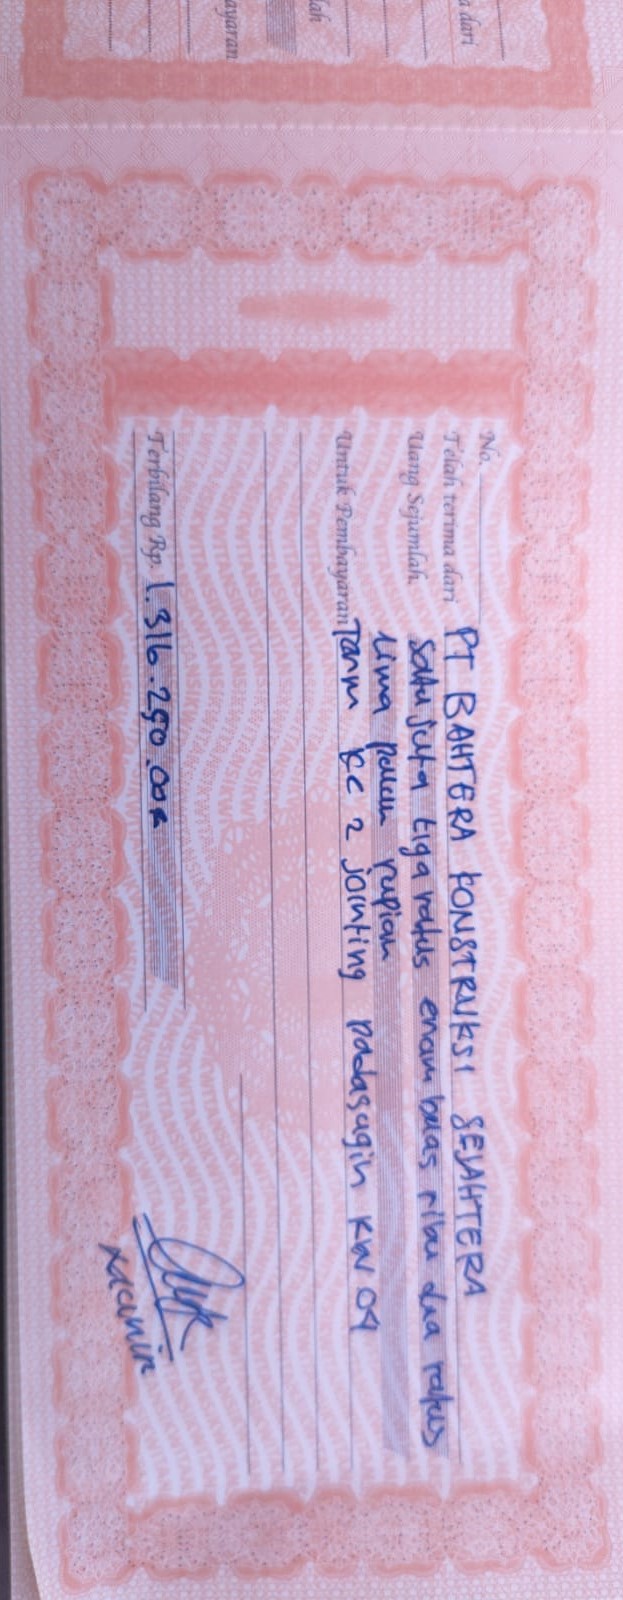 a dari
lah
ayaran
No.
Telah terima dari PT BAHTERA KONSTRUKSI SEJAHTERA
Uang Sejumlah. Satu juta tiga ratus enam belas ribu dua ratus
lima puluh rupiah
Untuk Pembayaran KC 2 jointing padasugih KW 04
Terbilang Rp. 1.316.250.00